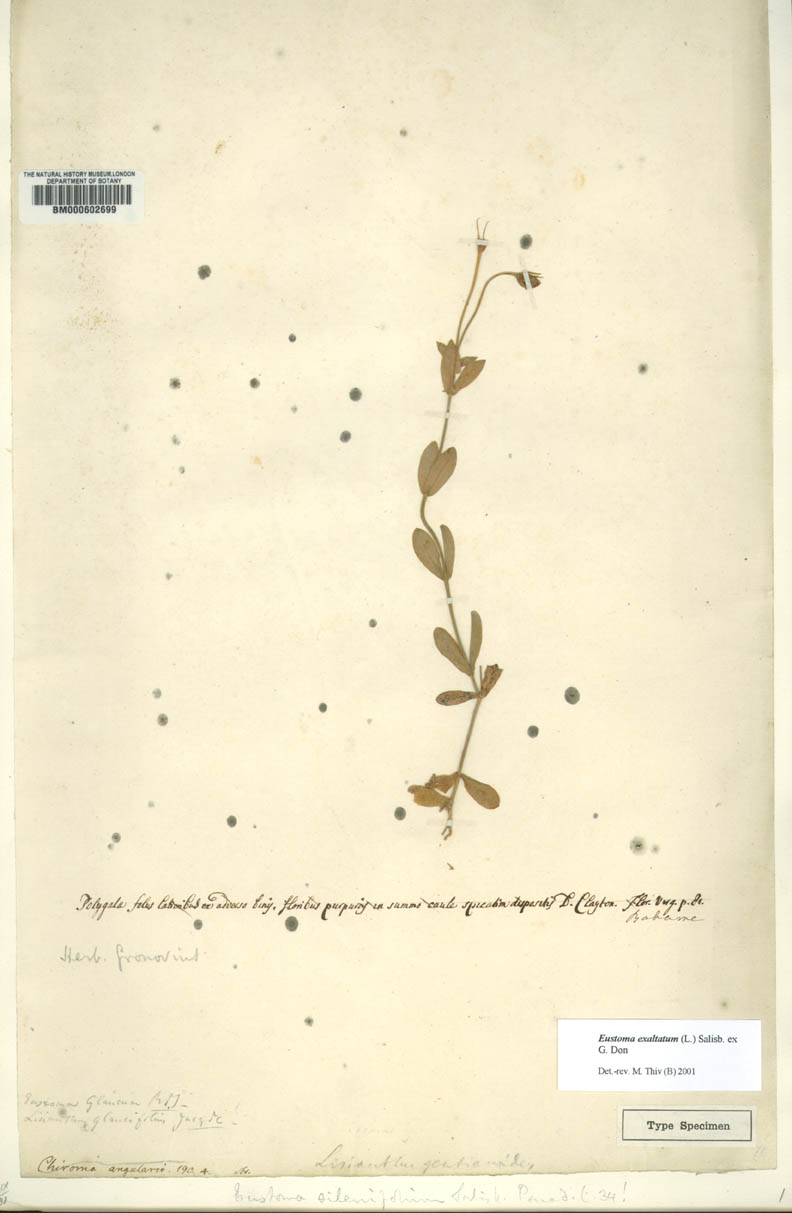 THE NATURAL HISTORY MUSEUM, LONDON
DEPARTMENT OF BOTANY
BM000602699
Polygala foliis latioribus ex adverso binis, floribus purpureis in summo caule spicatim dispositis D. Clayton. Flor. Virg. p.
Bahame
Herb. Gronovius
Eustoma exaltatum (L.) Salisb. ex
G. Don
Det.-rev. M. Thiv (B) 2001
Eustoma Glaucum
Lisianthus glaucifolius Jacq
Type Specimen
Chironia angularis. 190. 4.
Lisianthus gentianoides
Eustoma silenifolium Salisb. Parad. t. 34!
1